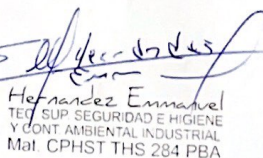 Hernandez Emmanuel
TEC SUP SEGURIDAD E HIGIENE
Y CONT AMBIENTAL INDUSTRIAL
Mat. CPHST THS 284 PBA